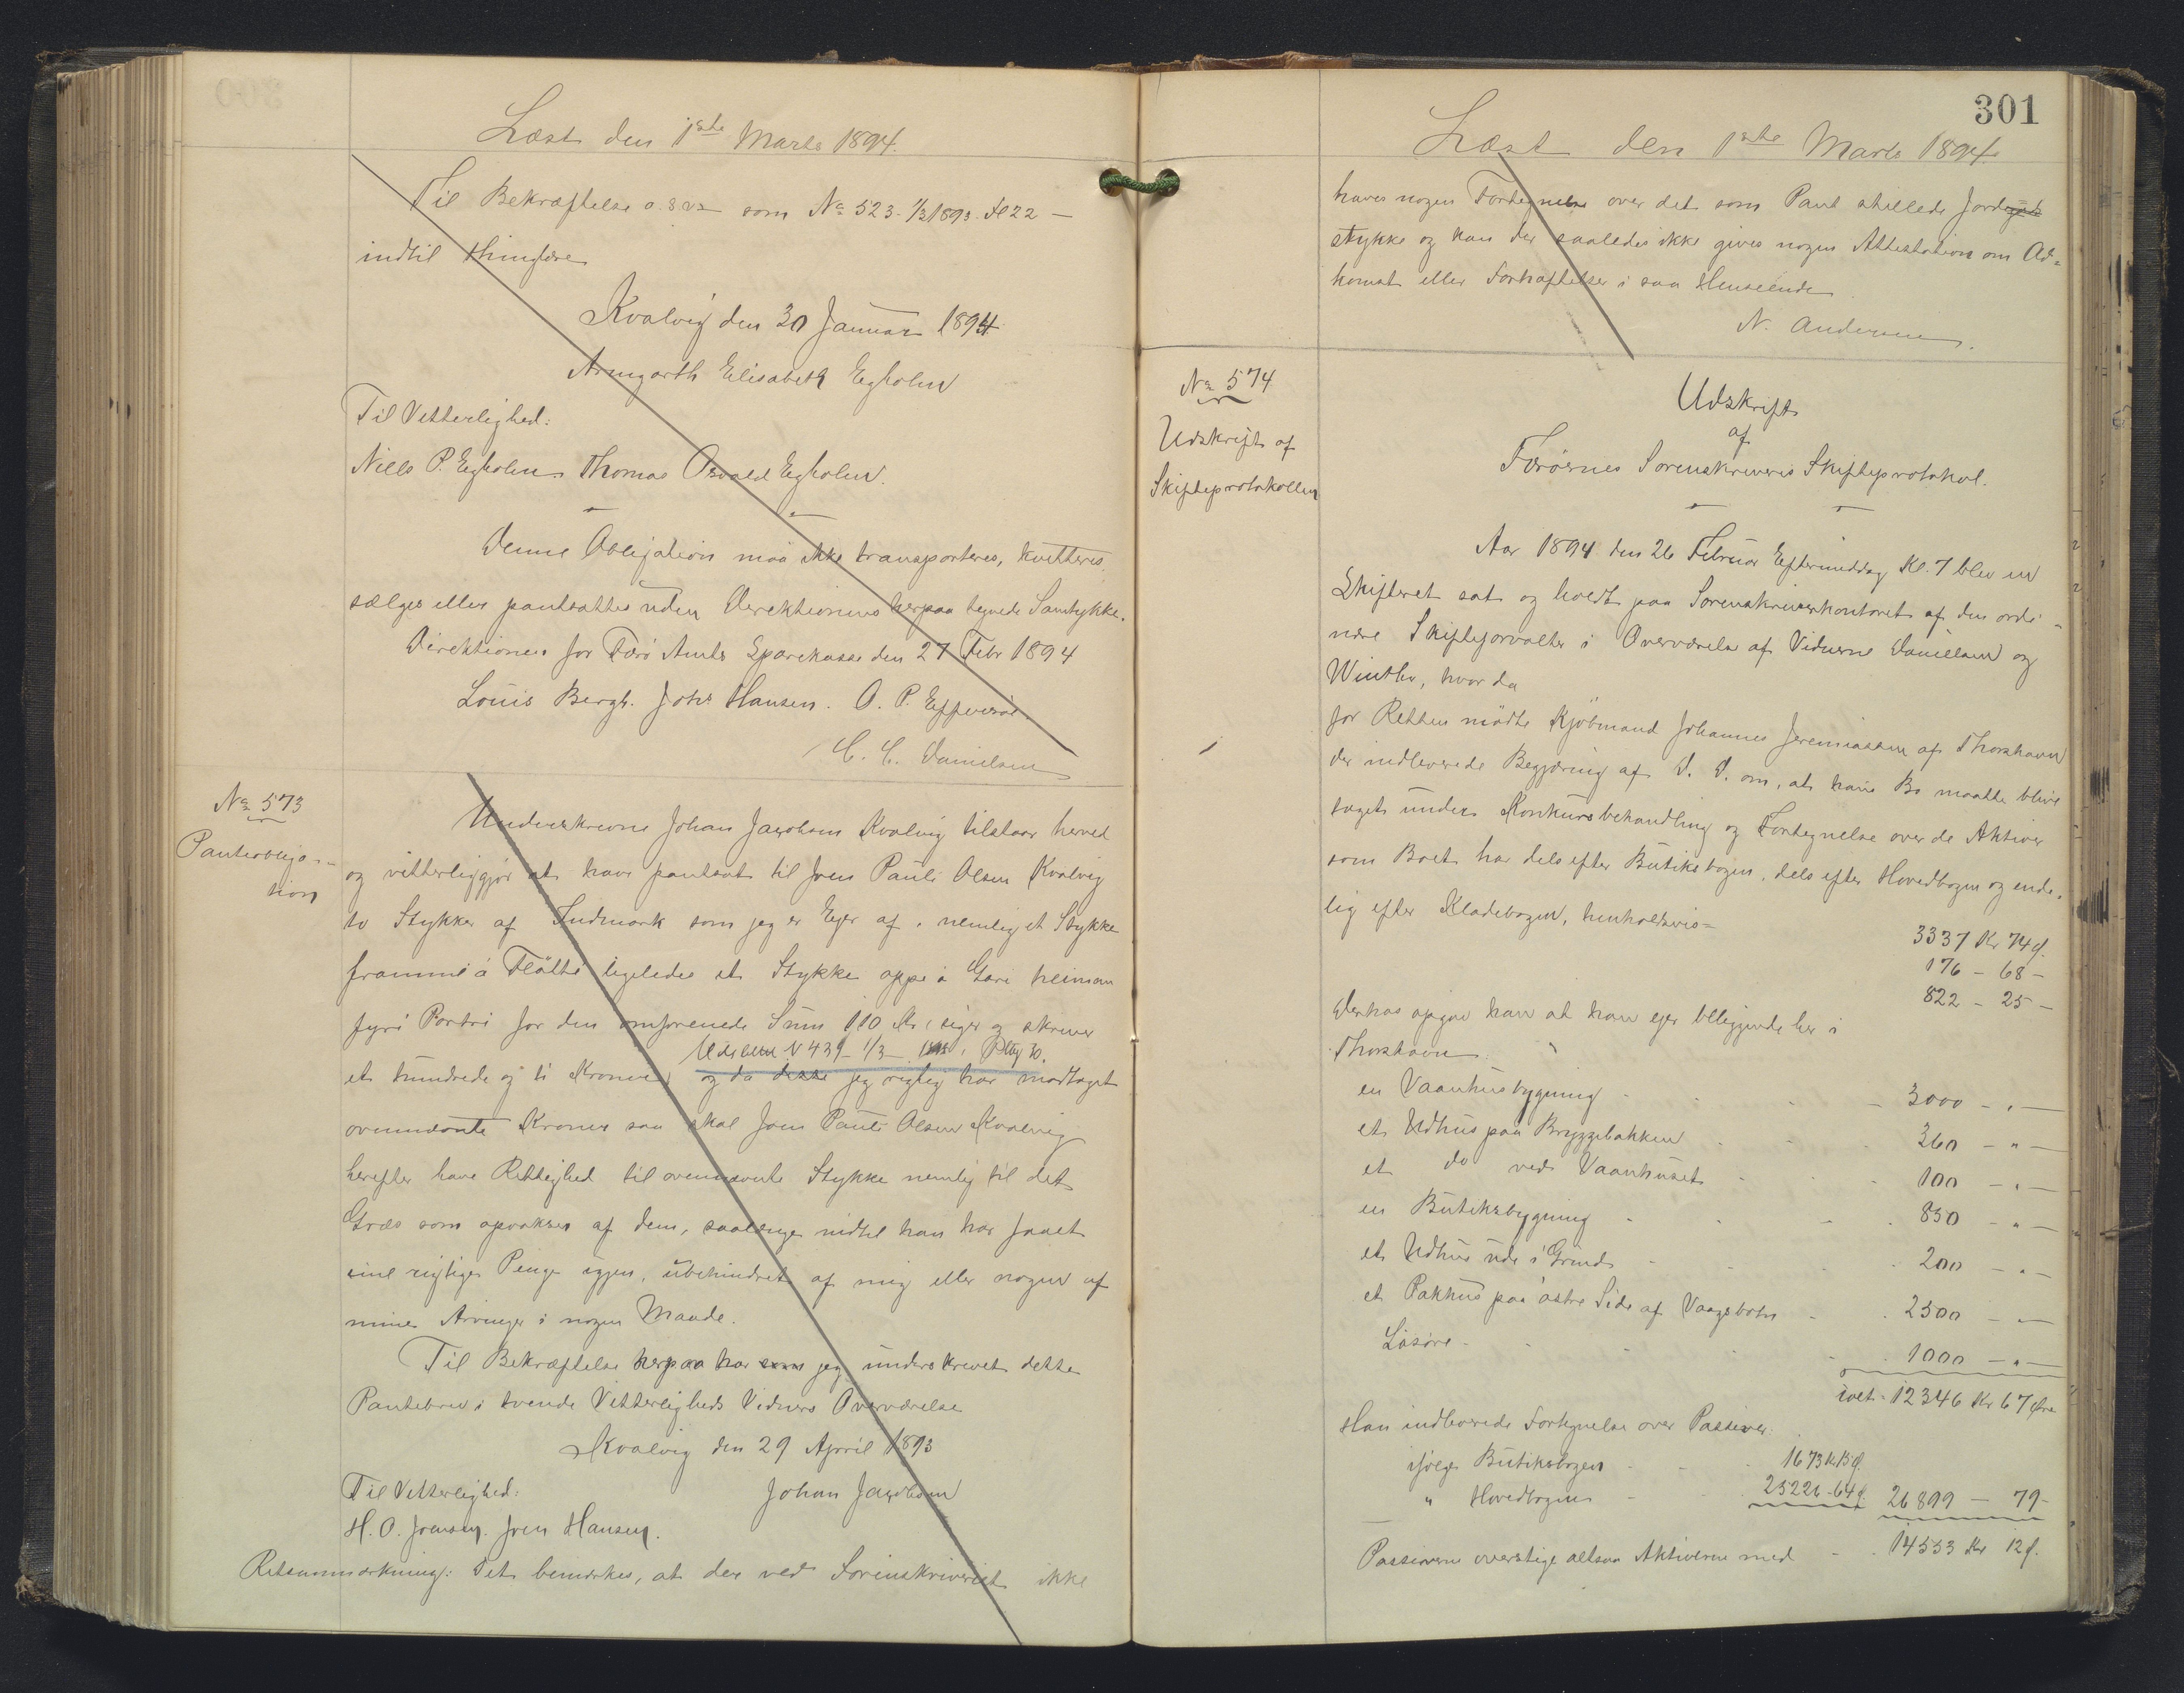 Læst den 1ste Marts 1894.
Til Bekræftelse o.s.v. som No 523. 1/3 1893. Fl 22 —
indtil Thinglæse
Kvalvig den 30 Januar 1894
Armgarth Elisabeth Egholm
Til Vitterlighed:
Niels P. Egholm Thomas Osvald Egholm.
Denne Obligation maa ikke transporteres, kvitteres,
sælges eller pantsættes uden Direktionens herpaa tegnede Samtykke.
Direktionen for Færø Amts Sparekasse den 27 Febr 1894
Louis Bergh. Johs Hansen. O. P. Effersøe.
C. C. Danielsen
No 573
Panteobliga-
tion
Underskrevne Johan Jacobsen Kvalvig tilstaar herved
og vitterliggjør at have pantsat til Joen Pauli Olsen Kvalvig
to Stykker af Indmark som jeg er Ejer af, nemlig et Stykke
frammi á Fløtti ligeledes et Stykke oppi á Gari heiman
fyri Portri for den omforenede Sum 110 Kr, siger og skriver
Udslettet N 439 - 1/3 - Ptg 30.
et hundrede og ti Kroner, og da dette jeg rigtig har modtaget
ovennævnte Kroner saa skal Joen Pauli Olsen Kvalvig
herefter have Rettighed til ovennævnte Stykke nemlig til det
Græs som opvokser af dem, saalænge indtil han har faaet
sine rigtige Penge igjen, ubehindret af mig eller nogen af
mine Arvinger i nogen Maade.
Til Bekræftelse herpaa har jeg underskrevet dette
Pantebrev i tvende Vitterligheds Vidners Overværelse
Kvalvig den 29 April 1893
Til Vitterlighed: Johan Jacobsen
H. O. Joensen. Joen Hansen.
Retsanmærkning: Det bemærkes, at der ved Sorenskriveriet ikke
301
Læst den 1ste Marts 1894
haves nogen Fortegnelse over det som Pant stillede Jorde
stykke og kan der saaledes ikke gives nogen Attestation om Ad-
komst eller Forhæftelser i saa Henseende
N. Andersen.
No 574
Udskrift af
Skifteprotokollen
Udskrift
af
Færøernes Sorenskriveris Skifteprotokol.
Aar 1894 den 26 Februar Eftermiddag Kl. 7 blev en
Skifteret sat og holdt paa Sorenskriverkontoret af den ordi-
nære Skifteforvalter i Overværelse af Vidnerne Danielsen og
Winther, hvor da
for Retten mødte Kjøbmand Johannes Jeremiassen af Thorshavn
der indleverede Begjæring af D. D. om, at hans Bo maatte blive
taget under Konkursbehandling og Fortegnelse over de Aktiver
som Boet har dels efter Butiksbogen, dels efter Hovedbogen og ende-
lig efter Kladebogen, henholdsvis=
3337 Kr 74 Ø.
176 - 68 -
822 - 25 -
Derhos opgav han at han ejer beliggende her i
Thorshavn
en Vaanhusbygning - 3000 - „ -
et Udhus paa Bryggebakken - 360 - „ -
et do ved Vaanhuset - 100 - „ -
en Butiksbygning - 850 - „ -
et Udhus ude i Grund - 200 - „ -
et Pakhus paa østre Side af Vaagsbotn - 2500 - „ -
Løsøre - 1000 - „ -
ialt 12346 Kr 67 Øre
Han indleverede Fortegnelse over Passiver:
ifølge Butiksbogen - 1673 Kr 15 Ø.
„ Hovedbogen - 25226 - 64 Ø. 26899 - 79 -
Passiverne overstige altsaa Aktiverne med - 14553 Kr 12 Ø.